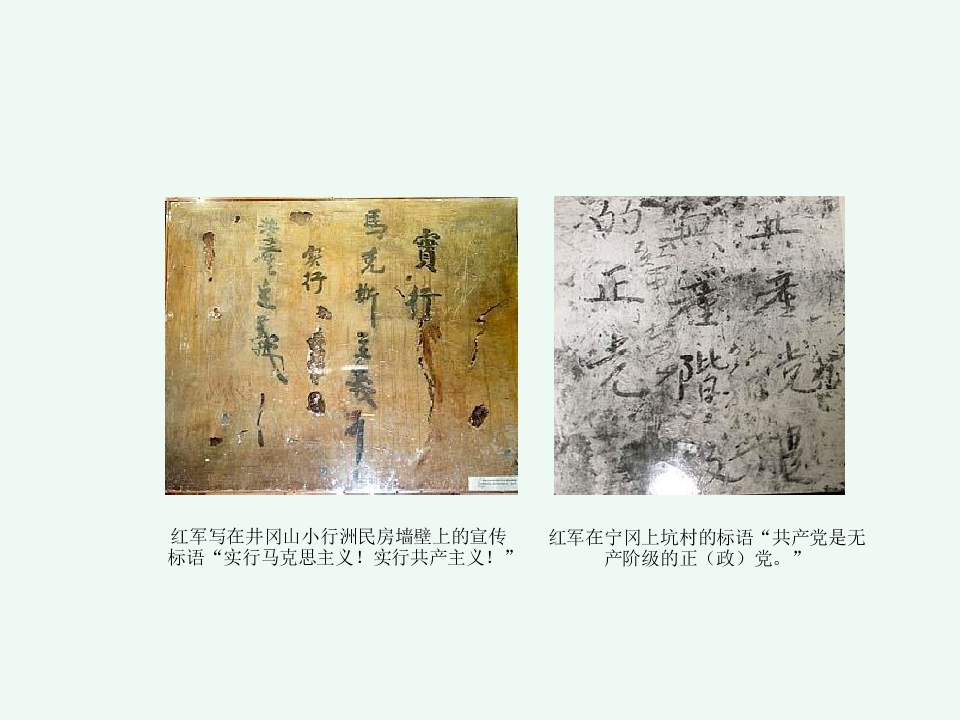 實行
馬克斯主義！
实行
共產主義！
共產党是
無產階級
的正党
红军写在井冈山小行洲民房墙壁上的宣传
标语“实行马克思主义！实行共产主义！”
红军在宁冈上坑村的标语“共产党是无
产阶级的正（政）党。”